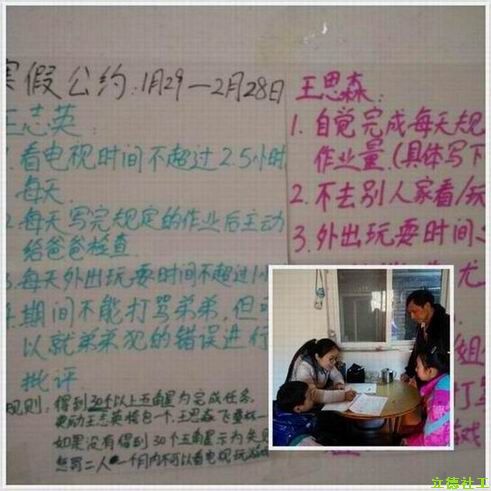 寒假公约:1月29—2月28日
王志英:
1.看电视时间不超过2.5小时
每天.
2.每天写完规定的作业后主动
给爸爸检查.
3.每天外出玩耍时间不超过1小
4.期间不能打骂弟弟,但
以就弟弟犯的错误进行
批评
规则:得到30个以上五角星为完成任务,
奖励王志英挎包一个,王思森飞
如果没有得到30个五角星示为失
惩罚二人一个月内不可以看电视玩游戏
王思森:
1.自觉完成每天规
作业量.(具体写下
2.不去别人家看/玩
3.外出玩耍时间
尤
姐
打
戏
立德社工